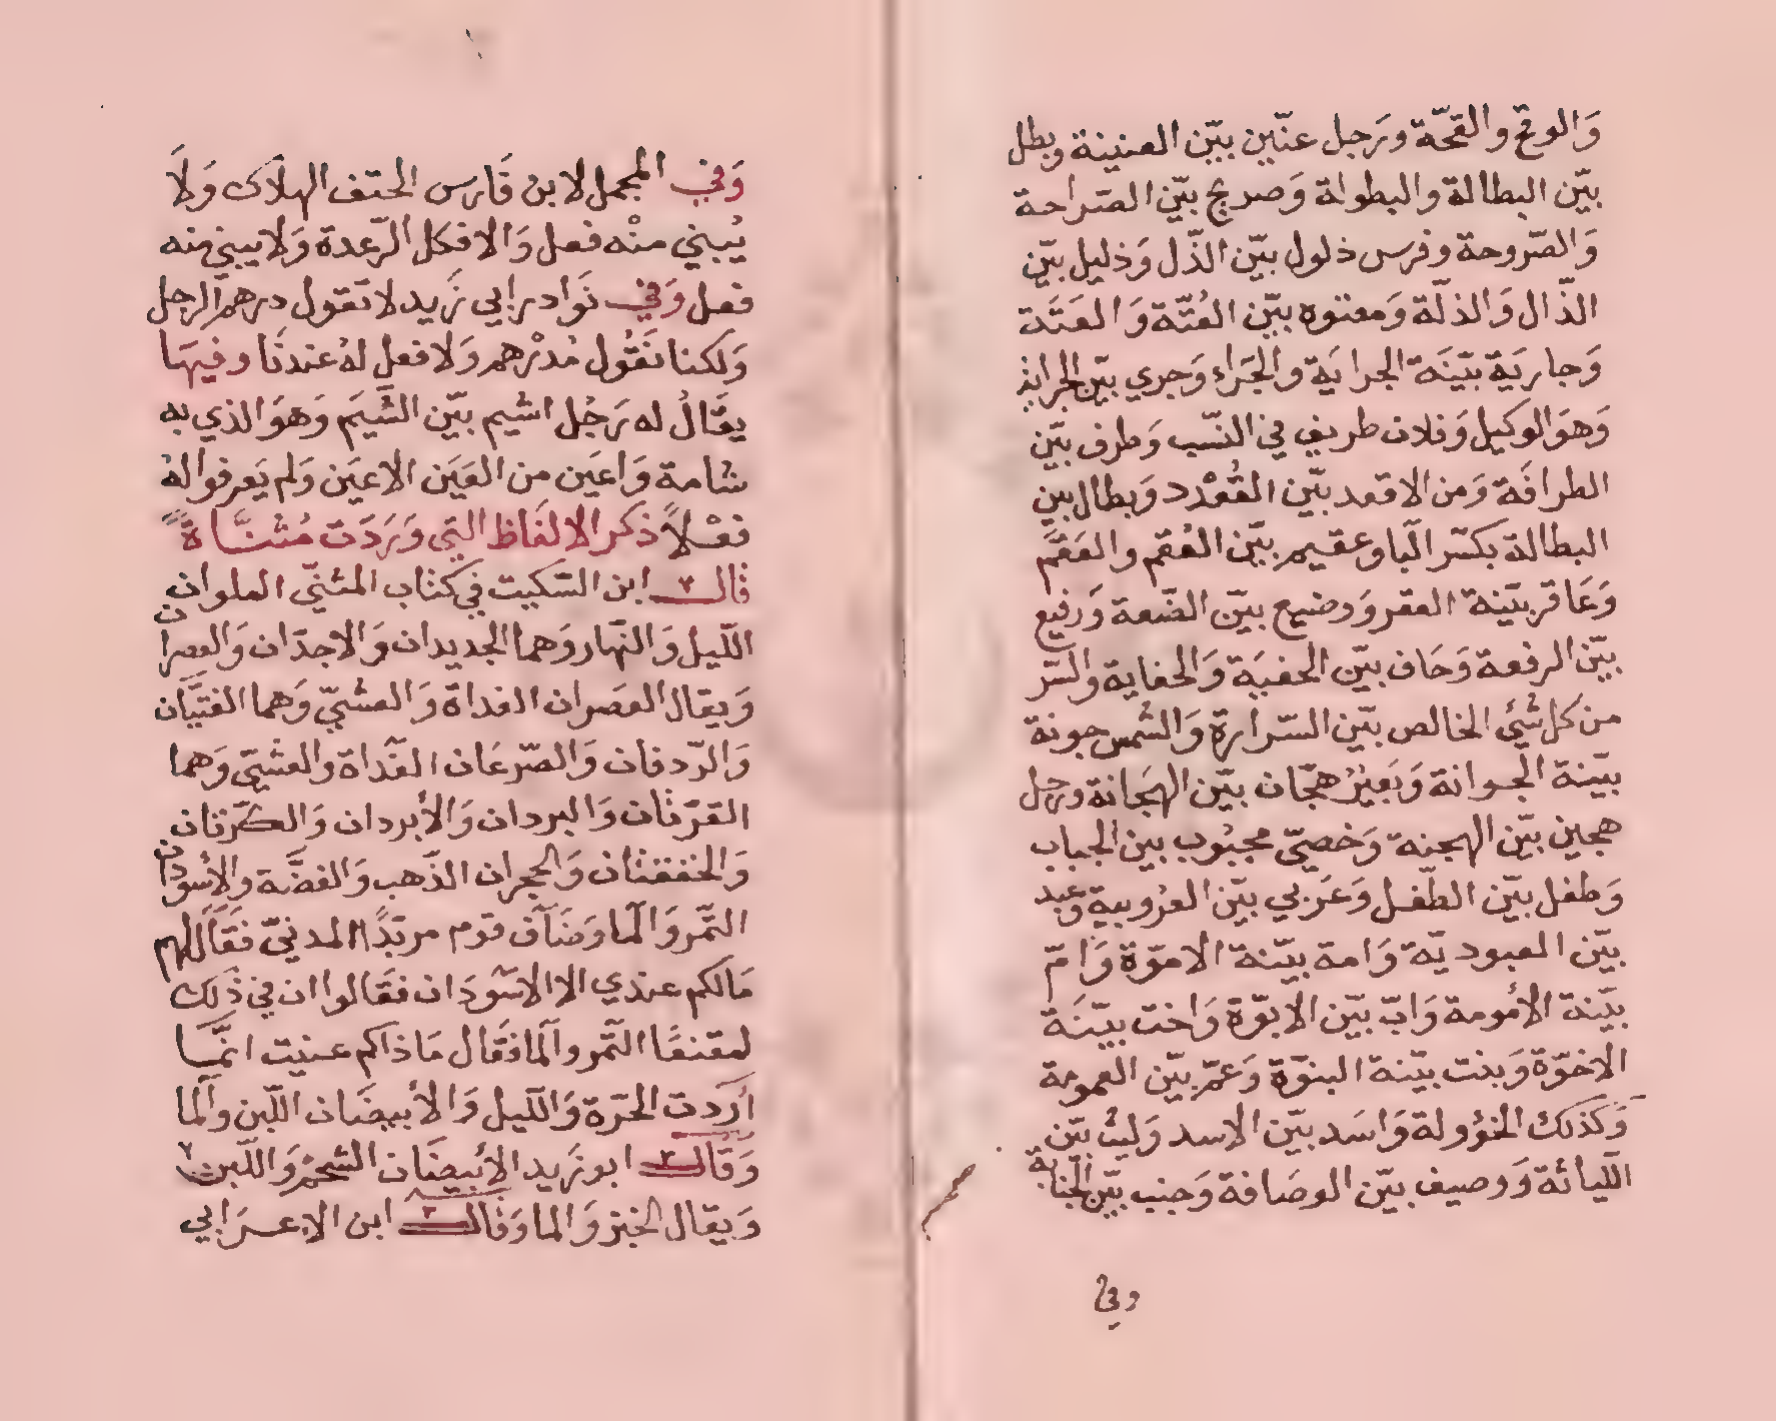 وَالوقح والقحّة ورَجل عنّين بيّن العنينة وبطل
بيّن البطالة والبطولة وَصريح بيّن الصّراحة
وَالصّروحة وفرس ذلول بيّن الذّل وَذليل بيّن
الذّال وَالذلّة وَمعتوه بيّن العُتّة وَالعَتَة
وَجاريَة بيّنَة الجرايَة والجَراء وَجري بيّن الجراية
وَهوَ الوكيل وَفلان طريف في النّسب وَطرف بيّن
الطرافَة وَمن الاقعد بيّن القُعْدد وَبطال بين
البطالة بكسر الباء وعقيم بيّن العُقم والعَقَم
وَعَاقر بيّنة العقر وَوضيع بيّن الضّعة وَرفيع
بيّن الرفعة وَحَاف بيّن الحفيَة وَالحفاية والسّر
من كل شيُ الخالص بيّن السّرارة وَالشمس جونة
بيّنة الجوانة وَبَعيرُ هجّان بيّن الهجَانة ورجل
هجين بيّن الهجنة وَخصيّ مجبُوب بين الجباب
وَطفل بيّن الطّفل وَعَربي بيّن العرُوبية وَعبد
بيّن العبوديّة وَامة بيّنة الامّوّة وَامّ
بيّنة الأمُومة وَابّ بيّن الابوّة وَاخت بيّنَة
الاخوّة وَبنت بيّنة البنوّة وَعمّ بيّن العمومة
وَكذلك الخؤولة وَاسَد بيّن الاسد وَليث بيّن
اللّياثة وَوصيف بيّن الوصَافة وَجنب بيّن الجنابة
وفي
وَفي المجمل لابن فَارس الحتف الهلَاك وَلَا
يُبني منْه فعل وَالافكل الرّعدة وَلا يبني منه
فعل وَفي نَوادر ابي زَيد لا تَقول درهم الرجل
وَلكنا نقُول مُدرْهم وَلا فعل لهُ عندنَا وفيهَا
يقَالُ له رَجُل اشيم بيّن الشَّيَم وَهوَ الذي به
شامة وَاعيَن من العَيَن الاعيَن وَلم يَعرفوا لهُ
فعْلاً ذكر الالفَاظ التي وَرَدَت مُثنَّاةً
قالـ ابن السّكيت في كتاب المثنّي الملوان
اللّيل وَالنّهار وَهما الجديدان وَالاجدّان وَالعصران
وَيقال العصَران الغداة وَالعشيّ وَهما الفتيَان
وَالرّدفان وَالصّرعَان الغَداة والعشيّ وَهما
القرّتان وَالبردان وَالأبردان وَالكرّتان
وَالخفقتان وَالحجران الذّهب وَالفضّة والاسودان
التّمر وَالما وَضَاف قوم مربدًا المدنيّ فَقَال لهم
مَالكم عندي الا الاسوَدان فقَالوا ان في ذَلك
لمقنعًا التّمر والما فقَال مَا ذاكم عنيت انمّا
أردت الحرّة وَاللّيل وَالأبيضَان اللّبن والما
وَقالـ ابو زَيد الأبيضَان الشحمُ وَاللّبن
وَيقال الخبز وَالما وَقالـ ابن الاعرَابي